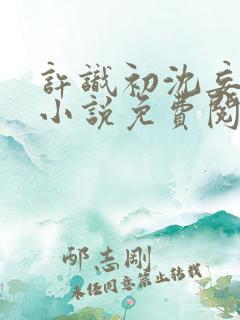 許識初沈妄
小說免費閱
邴志剛
未經同意禁止轉載